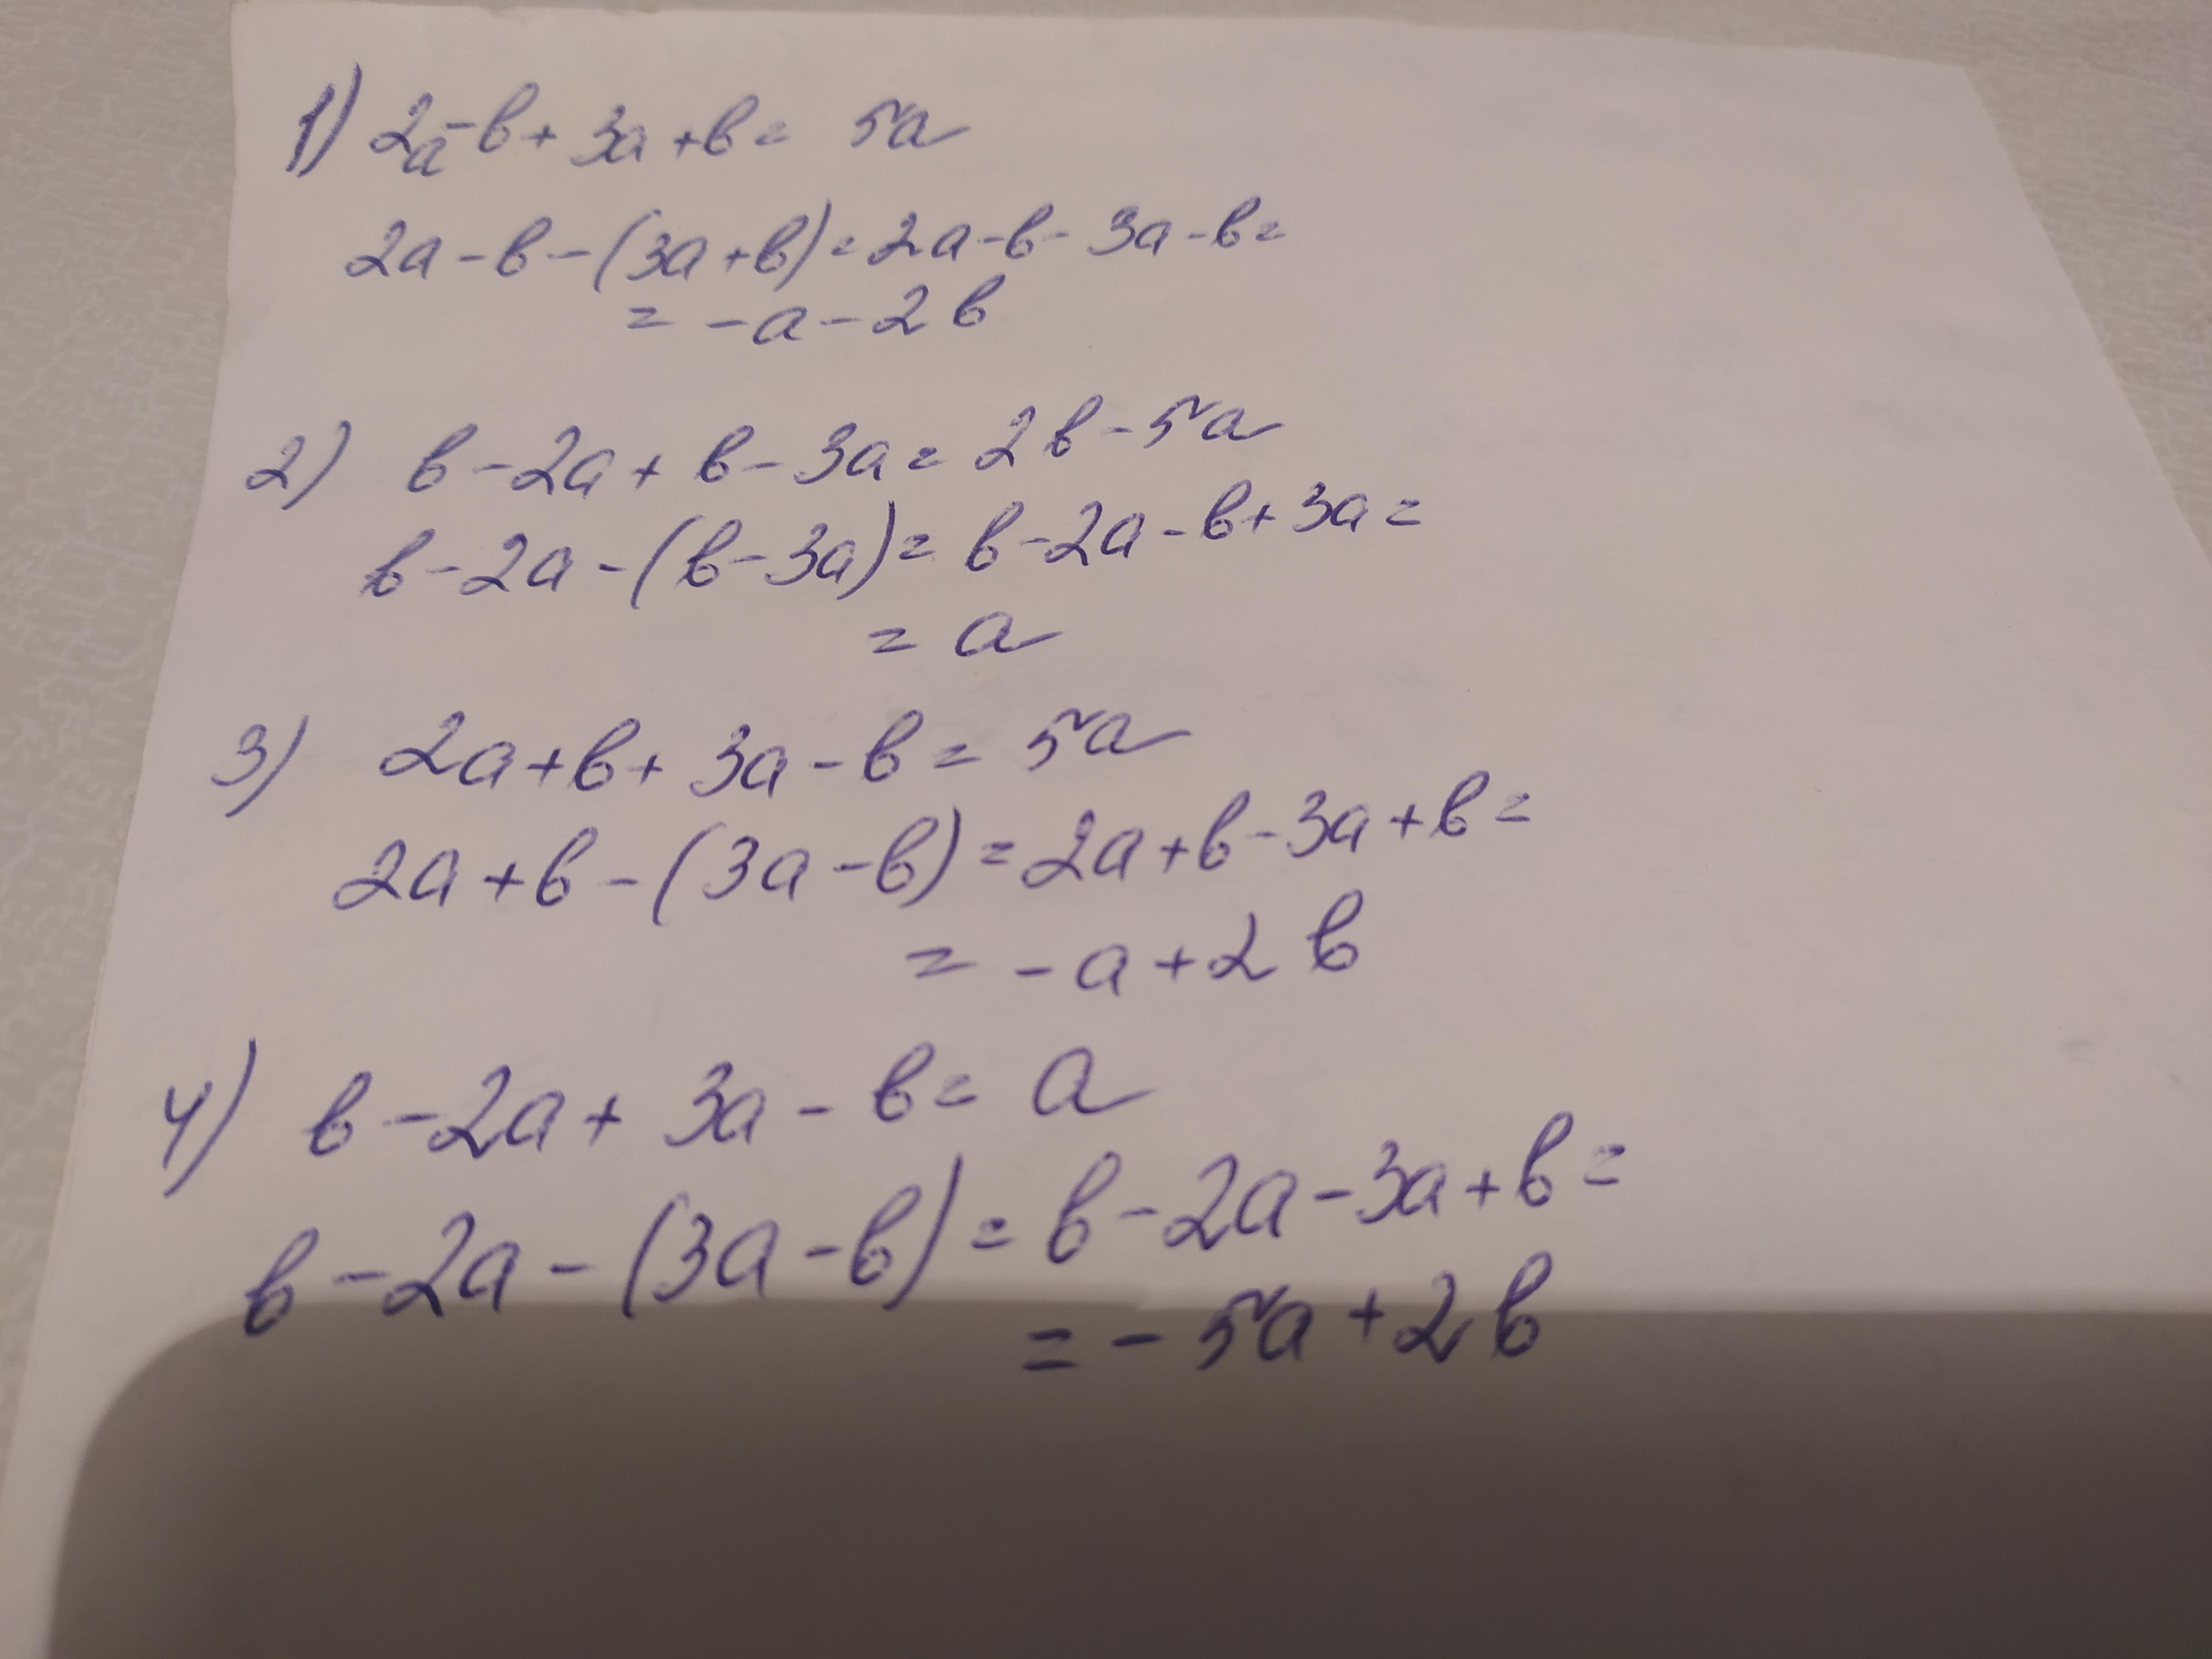 1) 2a-b+3a+b= 5a
2a-b-(3a+b)=2a-b-3a-b=
= -a-2b
2) b-2a+b-3a=2b-5a
b-2a-(b-3a)=b-2a-b+3a=
= a
3) 2a+b+3a-b=5a
2a+b-(3a-b)=2a+b-3a+b=
= -a+2b
4) b-2a+3a-b=a
b-2a-(3a-b)=b-2a-3a+b=
= -5a+2b